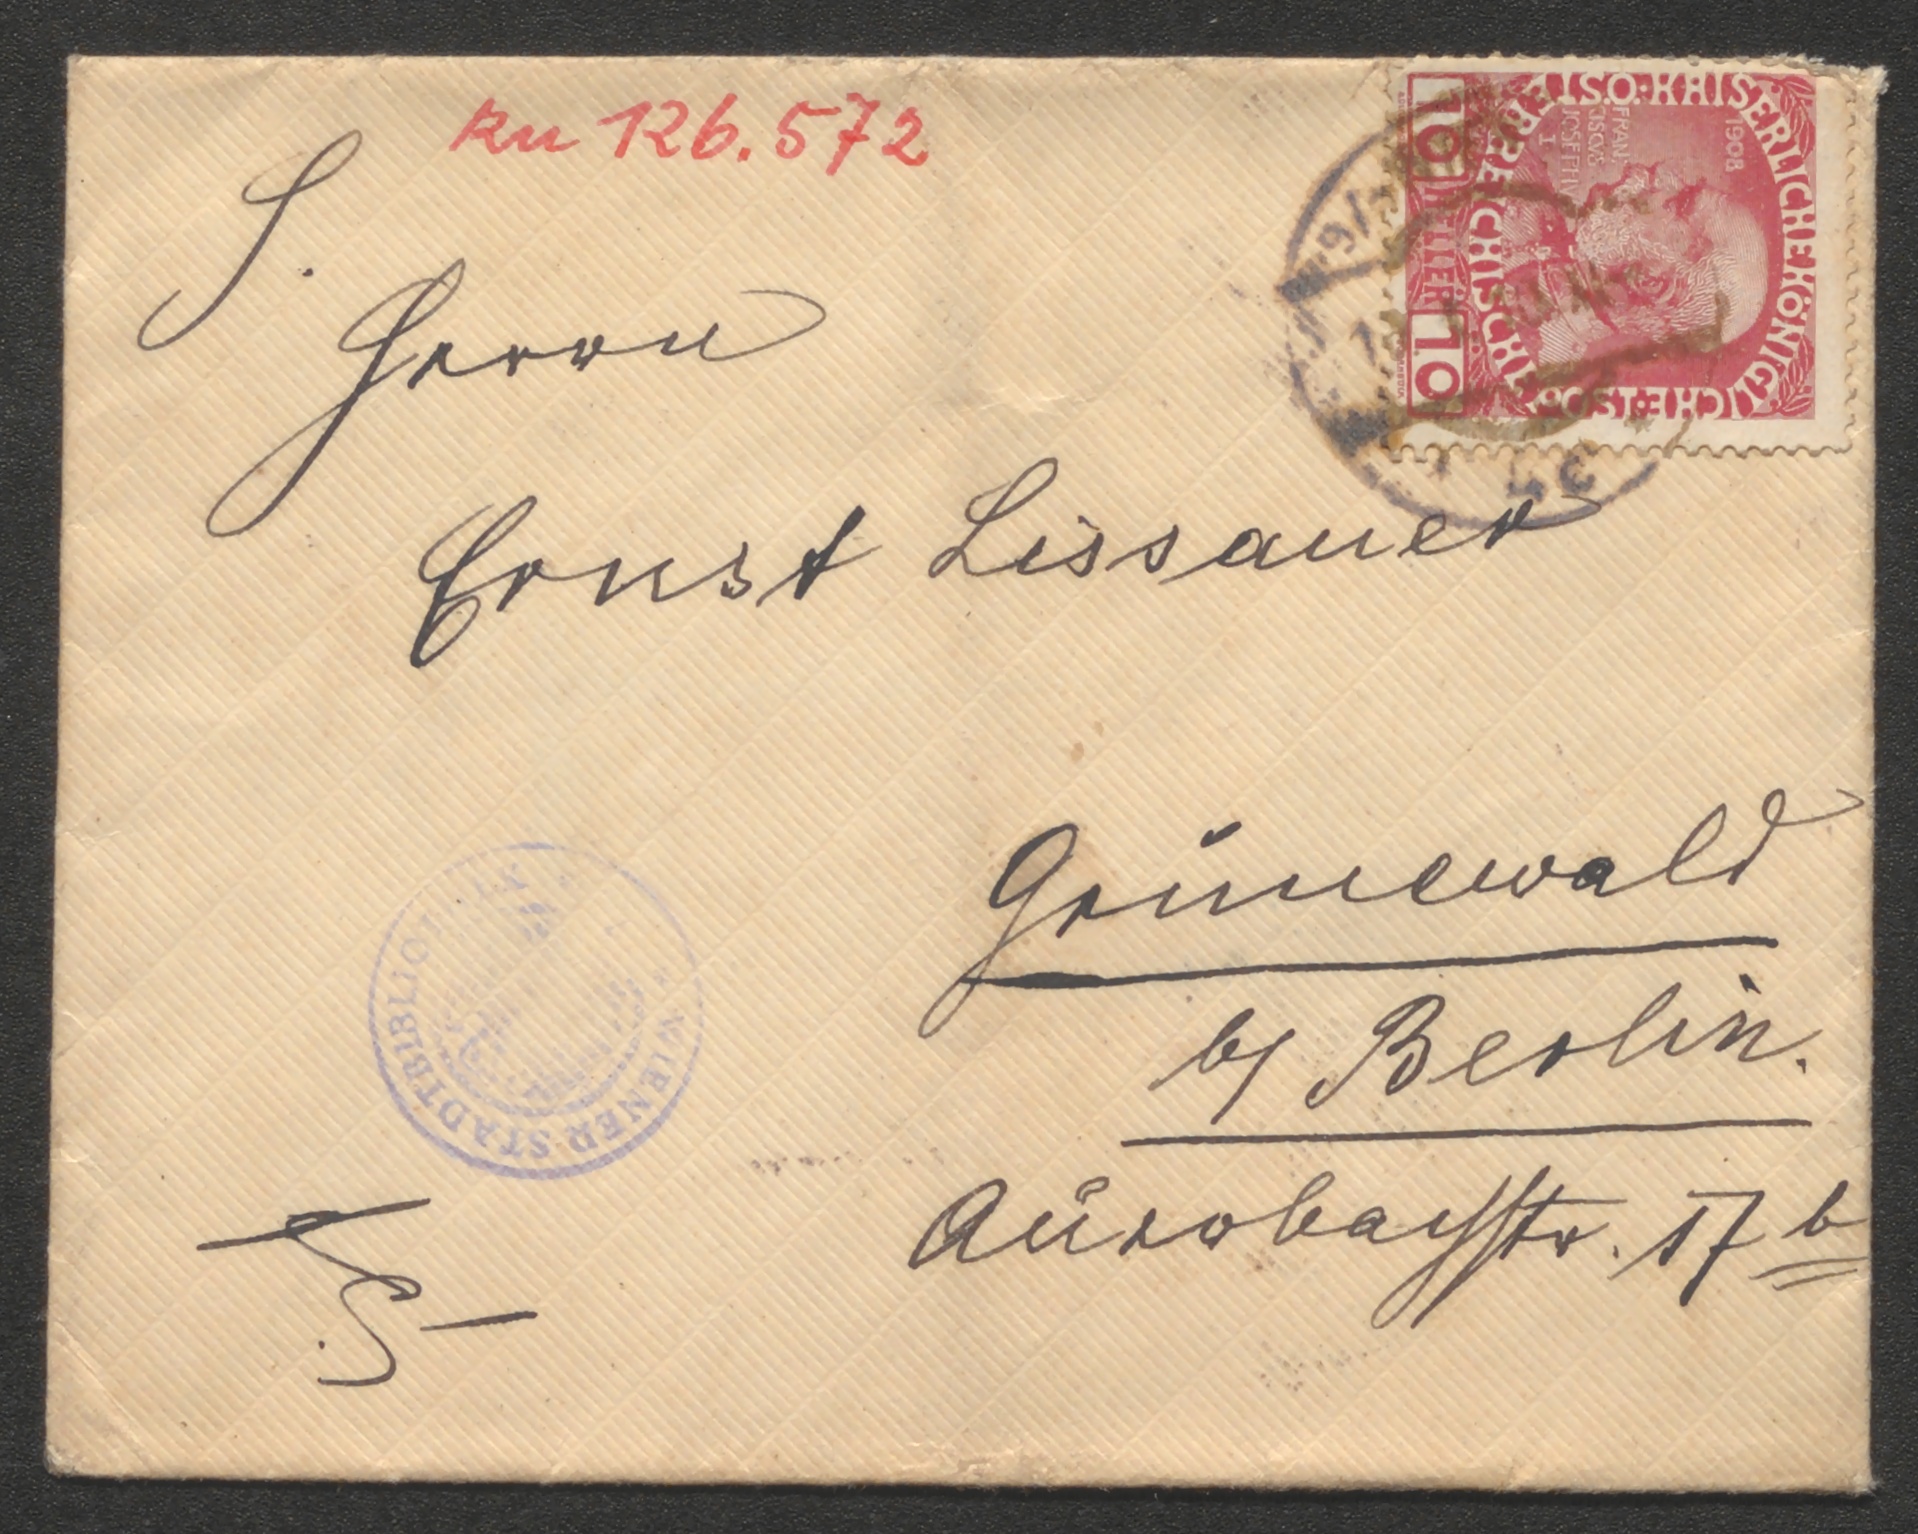 zu 126.572
S.
Herrn
Ernst Lissauer
Grünewald
b/ Berlin.
Auerbachstr. 17 b
S
KAISERLICHE KÖNIGLICHE ÖSTERREICHISCHE POST
1908
FRAN
CISCVS
IOSEPHVS
I
10 HELLER 10
WIENER STADTBIBLIOTHEK